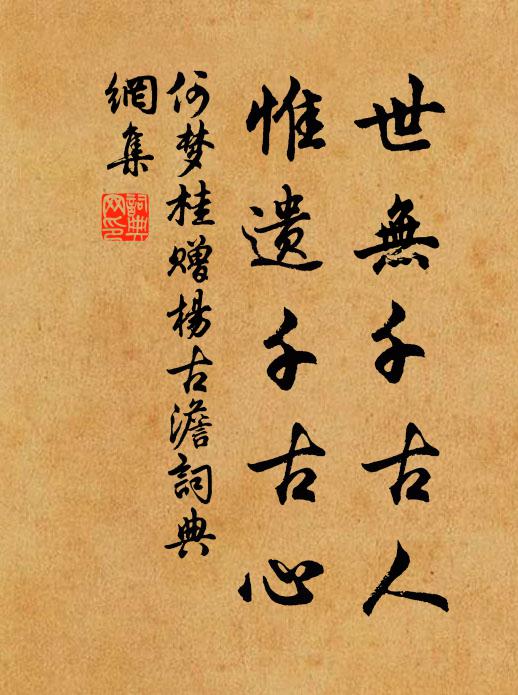 世無千古人
惟遺千古心
何梦桂赠楊古澹詞典
網集
詞典
网印